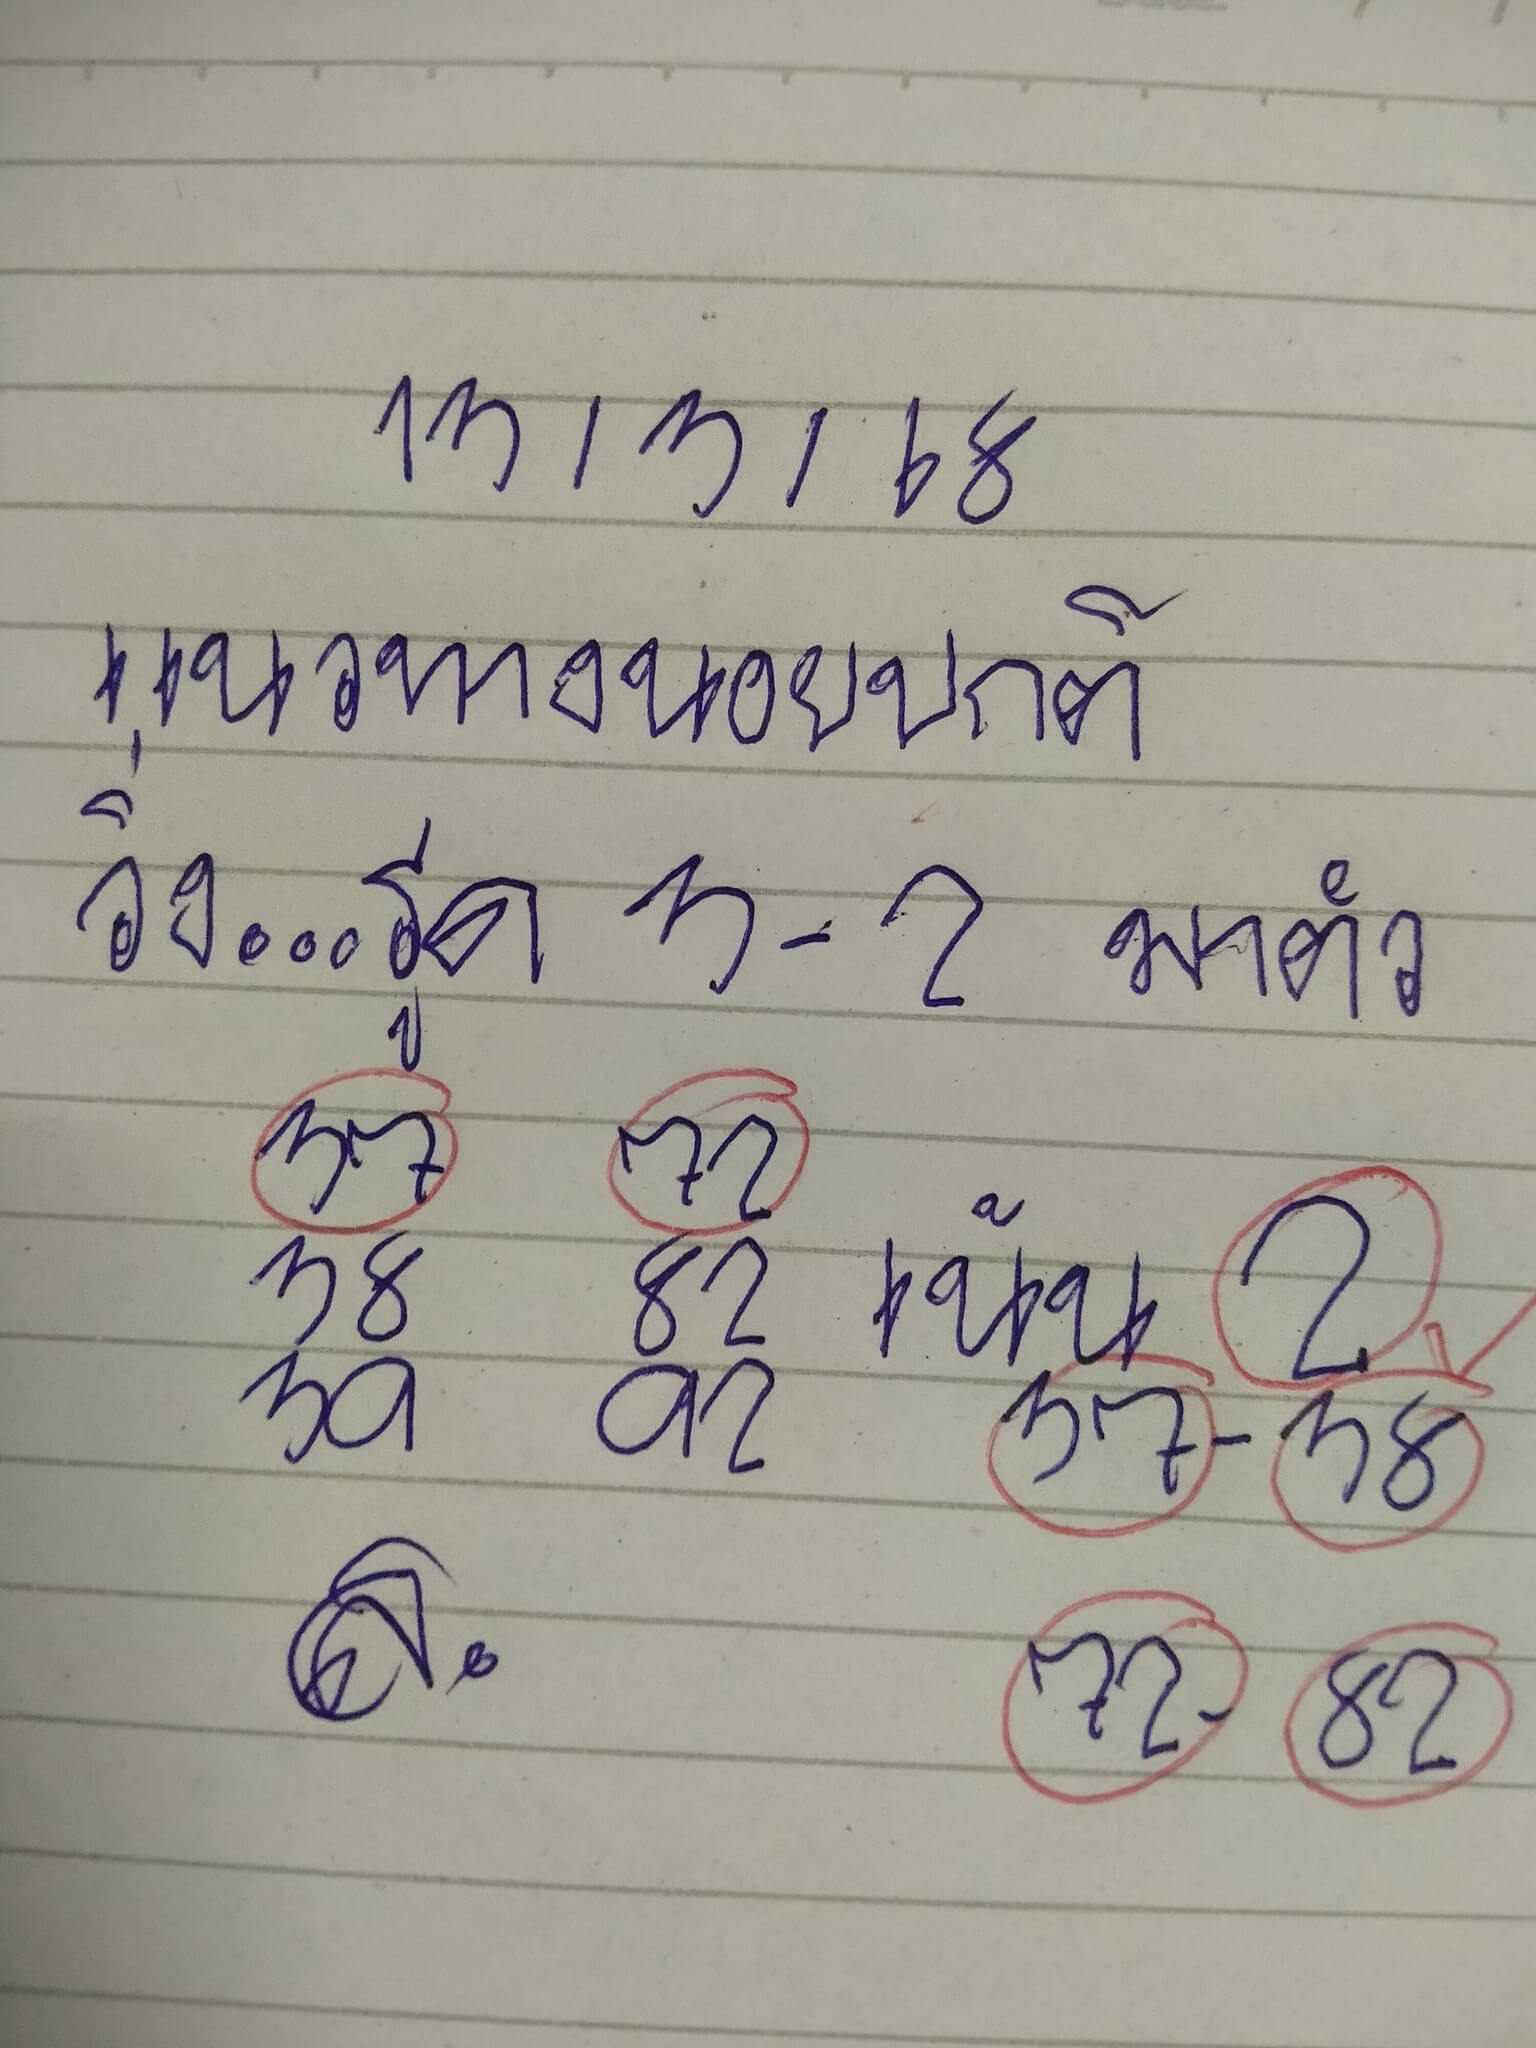 13/3/68
แนวทางนอยปกติ
วิ่ง...รูด 3-2 มาตัว
37 72
38 82 เน้น 2
39 92 37-38
72-82